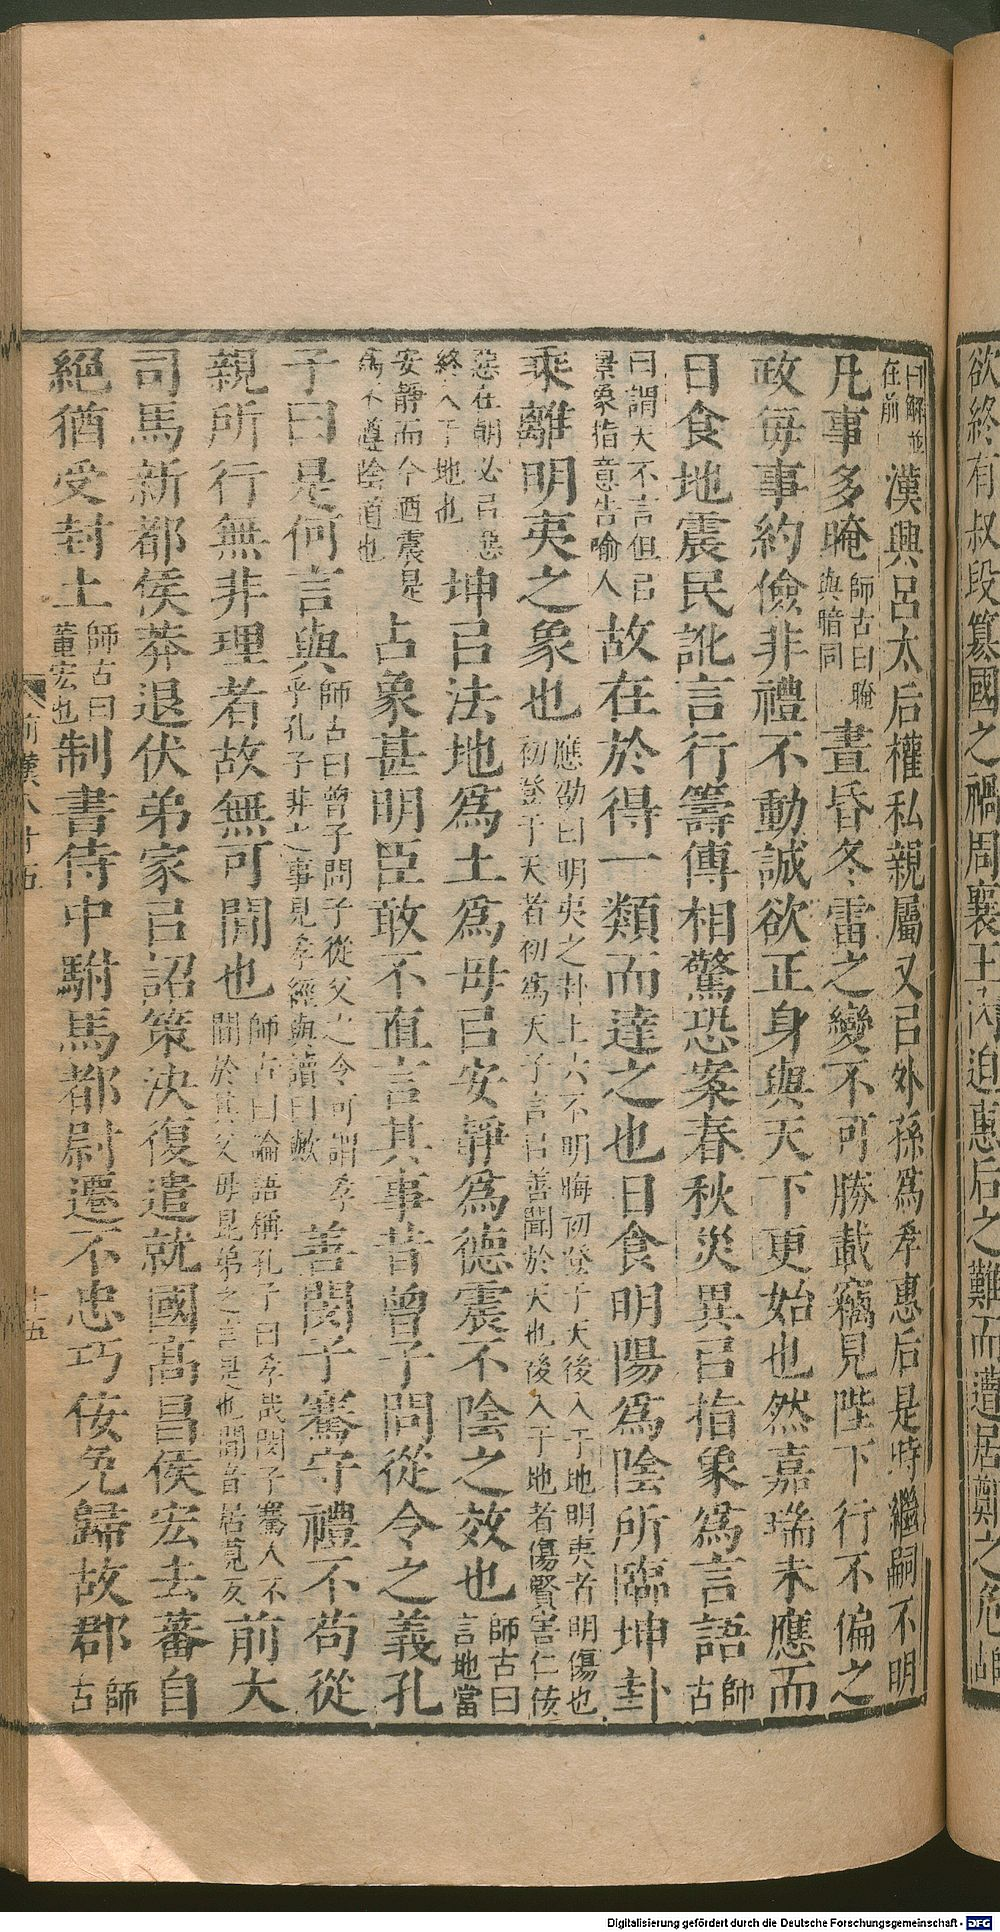 欲終有叔段篡國之禍周襄王內迫惠后之難而遭居鄭之危師古
曰解並在前漢興呂太后權私親屬又㠯外孫爲孝惠后是時繼嗣不明
凡事多晻師古曰晻與暗同晝昏冬雷之變不可勝載竊見陛下行不偏之
政每事約儉非禮不動誠欲正身與天下更始也然嘉瑞未應而
日食地震民訛言行籌傳相驚恐案春秋災異㠯指象爲言語師古
曰謂天不言但㠯景象指意告喻人故在於得一類而達之也日食明陽爲陰所臨坤卦
乘離明夷之象也應劭曰明夷之卦上六不明晦初登于天後入于地明夷者明傷也初登于天者初爲天子言㠯善聞於天也後入于地者傷賢害仁佞
惡在朝必㠯惡終入于地也坤㠯法地爲土爲母㠯安靜爲德震不陰之效也師古曰言地當
安靜而今迺震是爲不遵陰道也占象甚明臣敢不直言其事昔曾子問從令之義孔
子曰是何言與師古曰曾子問子從父之令可謂孝乎孔子非之事見孝經與讀曰歟善閔子騫守禮不苟從
親所行無非理者故無可閒也師古曰論語稱孔子曰孝哉閔子騫人不閒於其父母昆弟之言是也閒音居莧反前大
司馬新都侯莽退伏弟家㠯詔策決復遣就國高昌侯宏去蕃自
絕猶受封土師古曰董宏也制書侍中駙馬都尉遷不忠巧佞免歸故郡師古
前漢八十五
十五
Digitalisierung gefördert durch die Deutsche Forschungsgemeinschaft - DFG